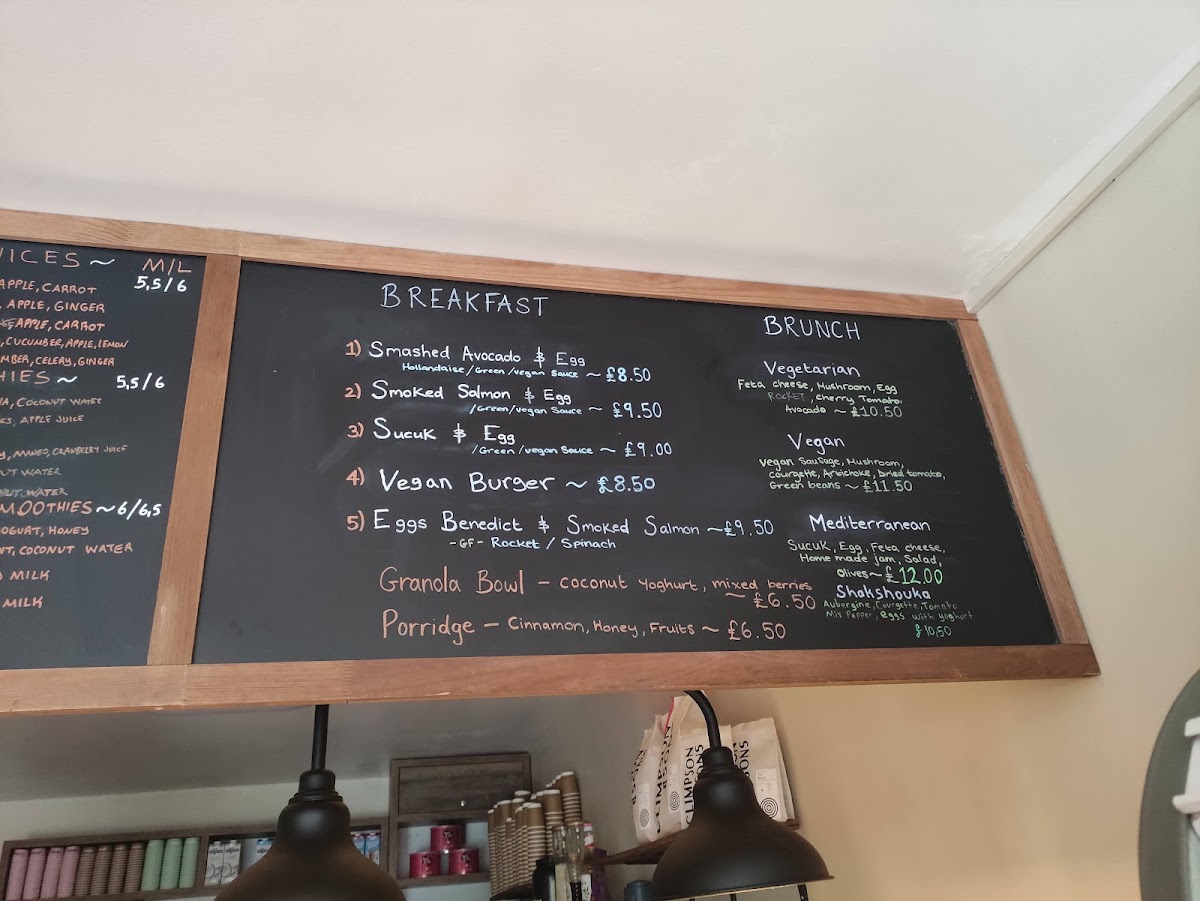 ICES ~ M/L
5,5/6
APPLE, CARROT
, APPLE, GINGER
APPLE, CARROT
, CUCUMBER, APPLE, LEMON
MBER, CELERY, GINGER
HIES ~ 5,5/6
A, COCONUT WATER
ES, APPLE JUICE
, MANGO, CRANBERRY JUICE
UT WATER
NUT WATER
MOOTHIES ~ 6/6,5
OGURT, HONEY
NT, COCONUT WATER
MILK
MILK
BREAKFAST
1) Smashed Avocado & Egg
Hollandaise/Green/vegan sauce ~ £8.50
2) Smoked Salmon & Egg
/Green/vegan Sauce ~ £9.50
3) Sucuk & Egg
/Green/vegan Sauce ~ £9.00
4) Vegan Burger ~ £8.50
5) Eggs Benedict & Smoked Salmon ~ £9.50
-GF- Rocket / Spinach
Granola Bowl - coconut yoghurt, mixed berries
~ £6.50
Porridge - Cinnamon, Honey, Fruits ~ £6.50
BRUNCH
Vegetarian
Feta cheese, Mushroom, Egg
ROCKET, cherry Tomato,
Avocado ~ £10.50
Vegan
Vegan Sausage, Mushroom,
courgette, Artichoke, Dried tomato,
Green beans ~ £11.50
Mediterranean
Sucuk, Egg, Feta cheese,
Home made jam, Salad,
Olives ~ £12.00
Shakshouka
Aubergine, Courgette, Tomato
Mix Pepper, eggs with yoghurt
£10,50
CLIMPSON
SONS